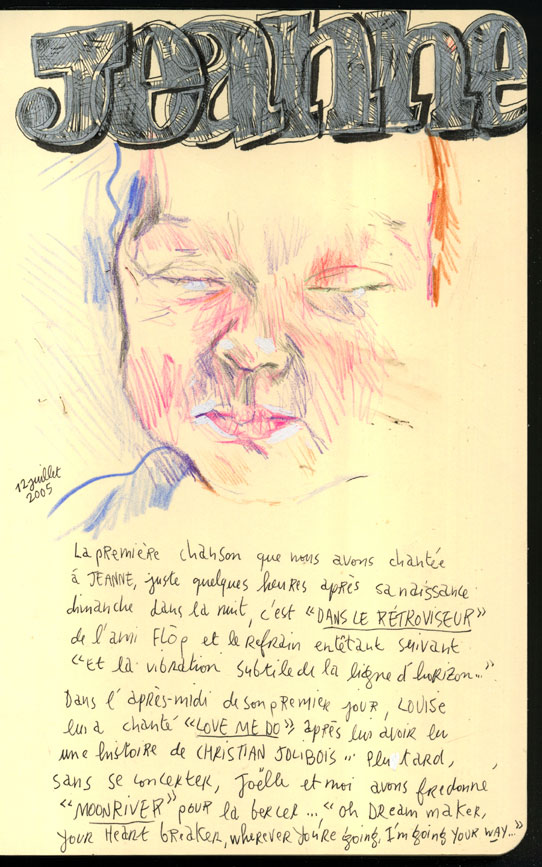 Jeanne
12 juillet
2005
La première chanson que nous avons chantée
à JEANNE, juste quelques heures après sa naissance
dimanche dans la nuit, c'est "DANS LE RÉTROVISEUR"
de l'ami Flòp et le refrain entêtant suivant
"Et la vibration subtile de la ligne d'horizon..."
Dans l'après-midi de son premier jour, LOUISE
lui a chanté "LOVE ME DO" après lui avoir lu
une histoire de CHRISTIAN JOLIBOIS... Plus tard,
sans se concerter, Joëlle et moi avons fredonné
"MOONRIVER" pour la bercer..., "oh Dream maker,
your Heart breaker, wherever you're going, I'm going your way..."